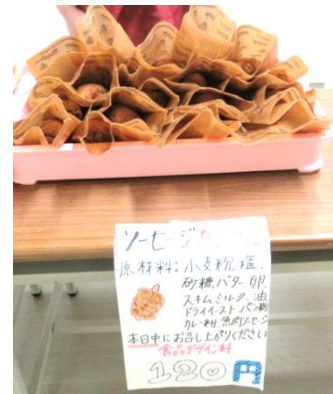 ソーセージ
原材料:小麦粉、塩、
砂糖、バター、卵、
スキムミルク、油、
ドライイースト、パン粉、
カレー粉、魚肉ソーセージ
本日中にお召し上がりください
食品デザイン科
120円